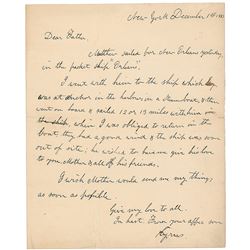 New York December 1st
Dear Father,
sailed for New Orleans yesterday,
in the packet ship Orleans.
I went with him to the ship which lay
was at anchor in the harbour in a Steam boat, & then
went on board & sailed 12 or 15 miles with him in
the ship, when I was obliged to return in the
boat, they had a good wind & the ship was soon
out of site; he wished to have me give his love
to you Mother & all of his friends.
I wish Mother would send me my things,
as soon as possible.
Give my love to all.
In hast. From your affec son
Cyrus